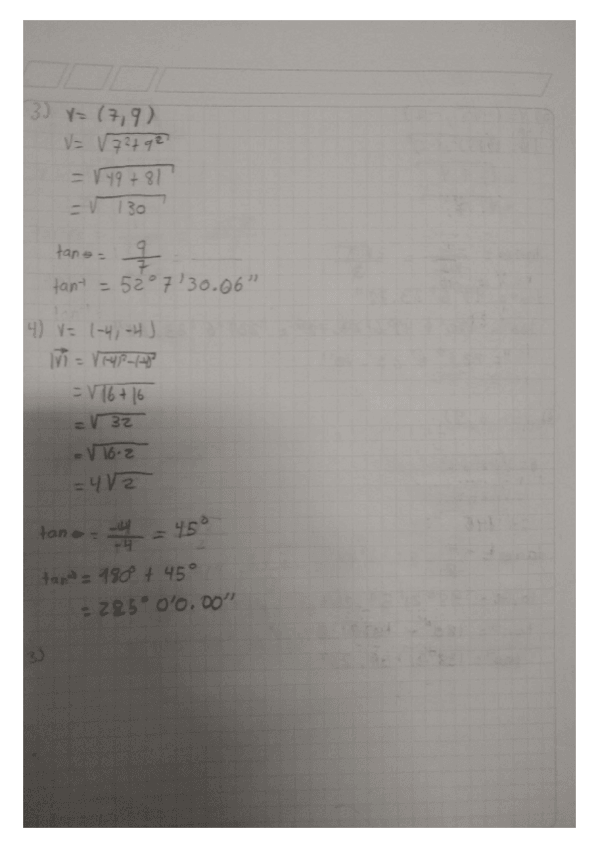 3) V= (7,9)
V= √7²+9²
= √49 + 81
= √ 130
tanθ= 9/7 =
tan⁻¹ = 52° 7'30.06"
4) V= (-4,-4)
|V⃗| =
= √16+16
= √ 32
= √16·2
= 4√2
tanθ = -4/-4 = 45°
= 180° + 45°
= 225° 0'0.00"